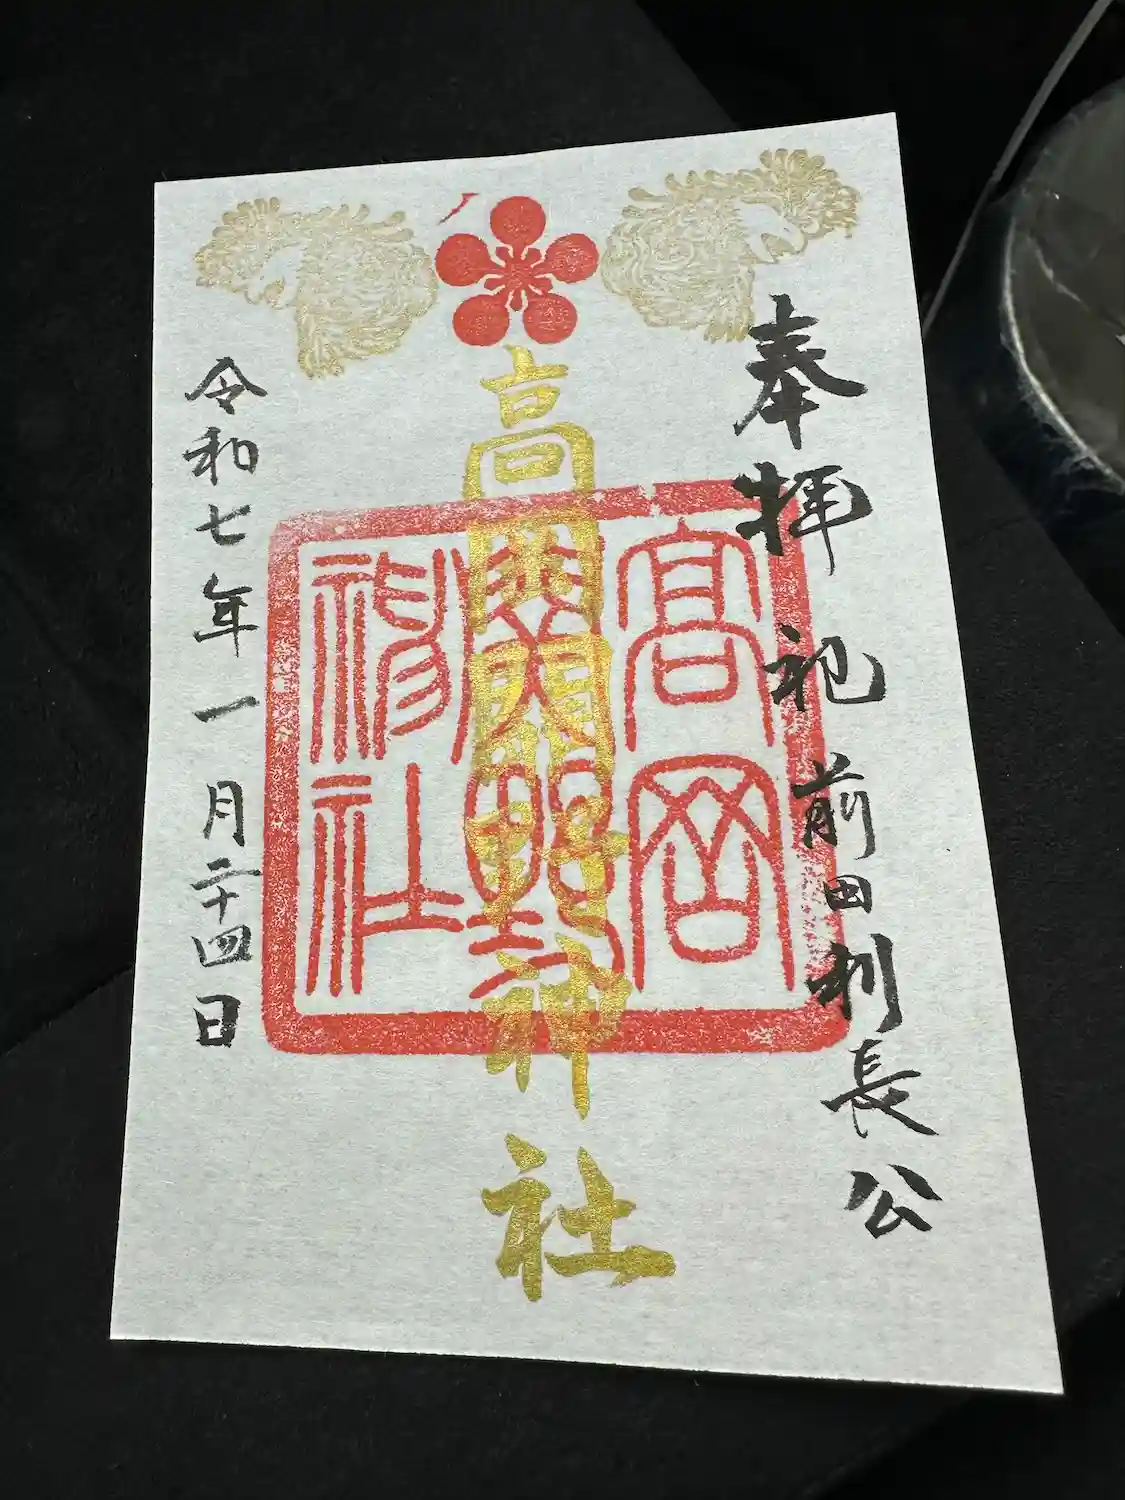 奉拝 祀 前田利長公
高岡關野神社
高岡
關野
神社
令和七年一月二十四日